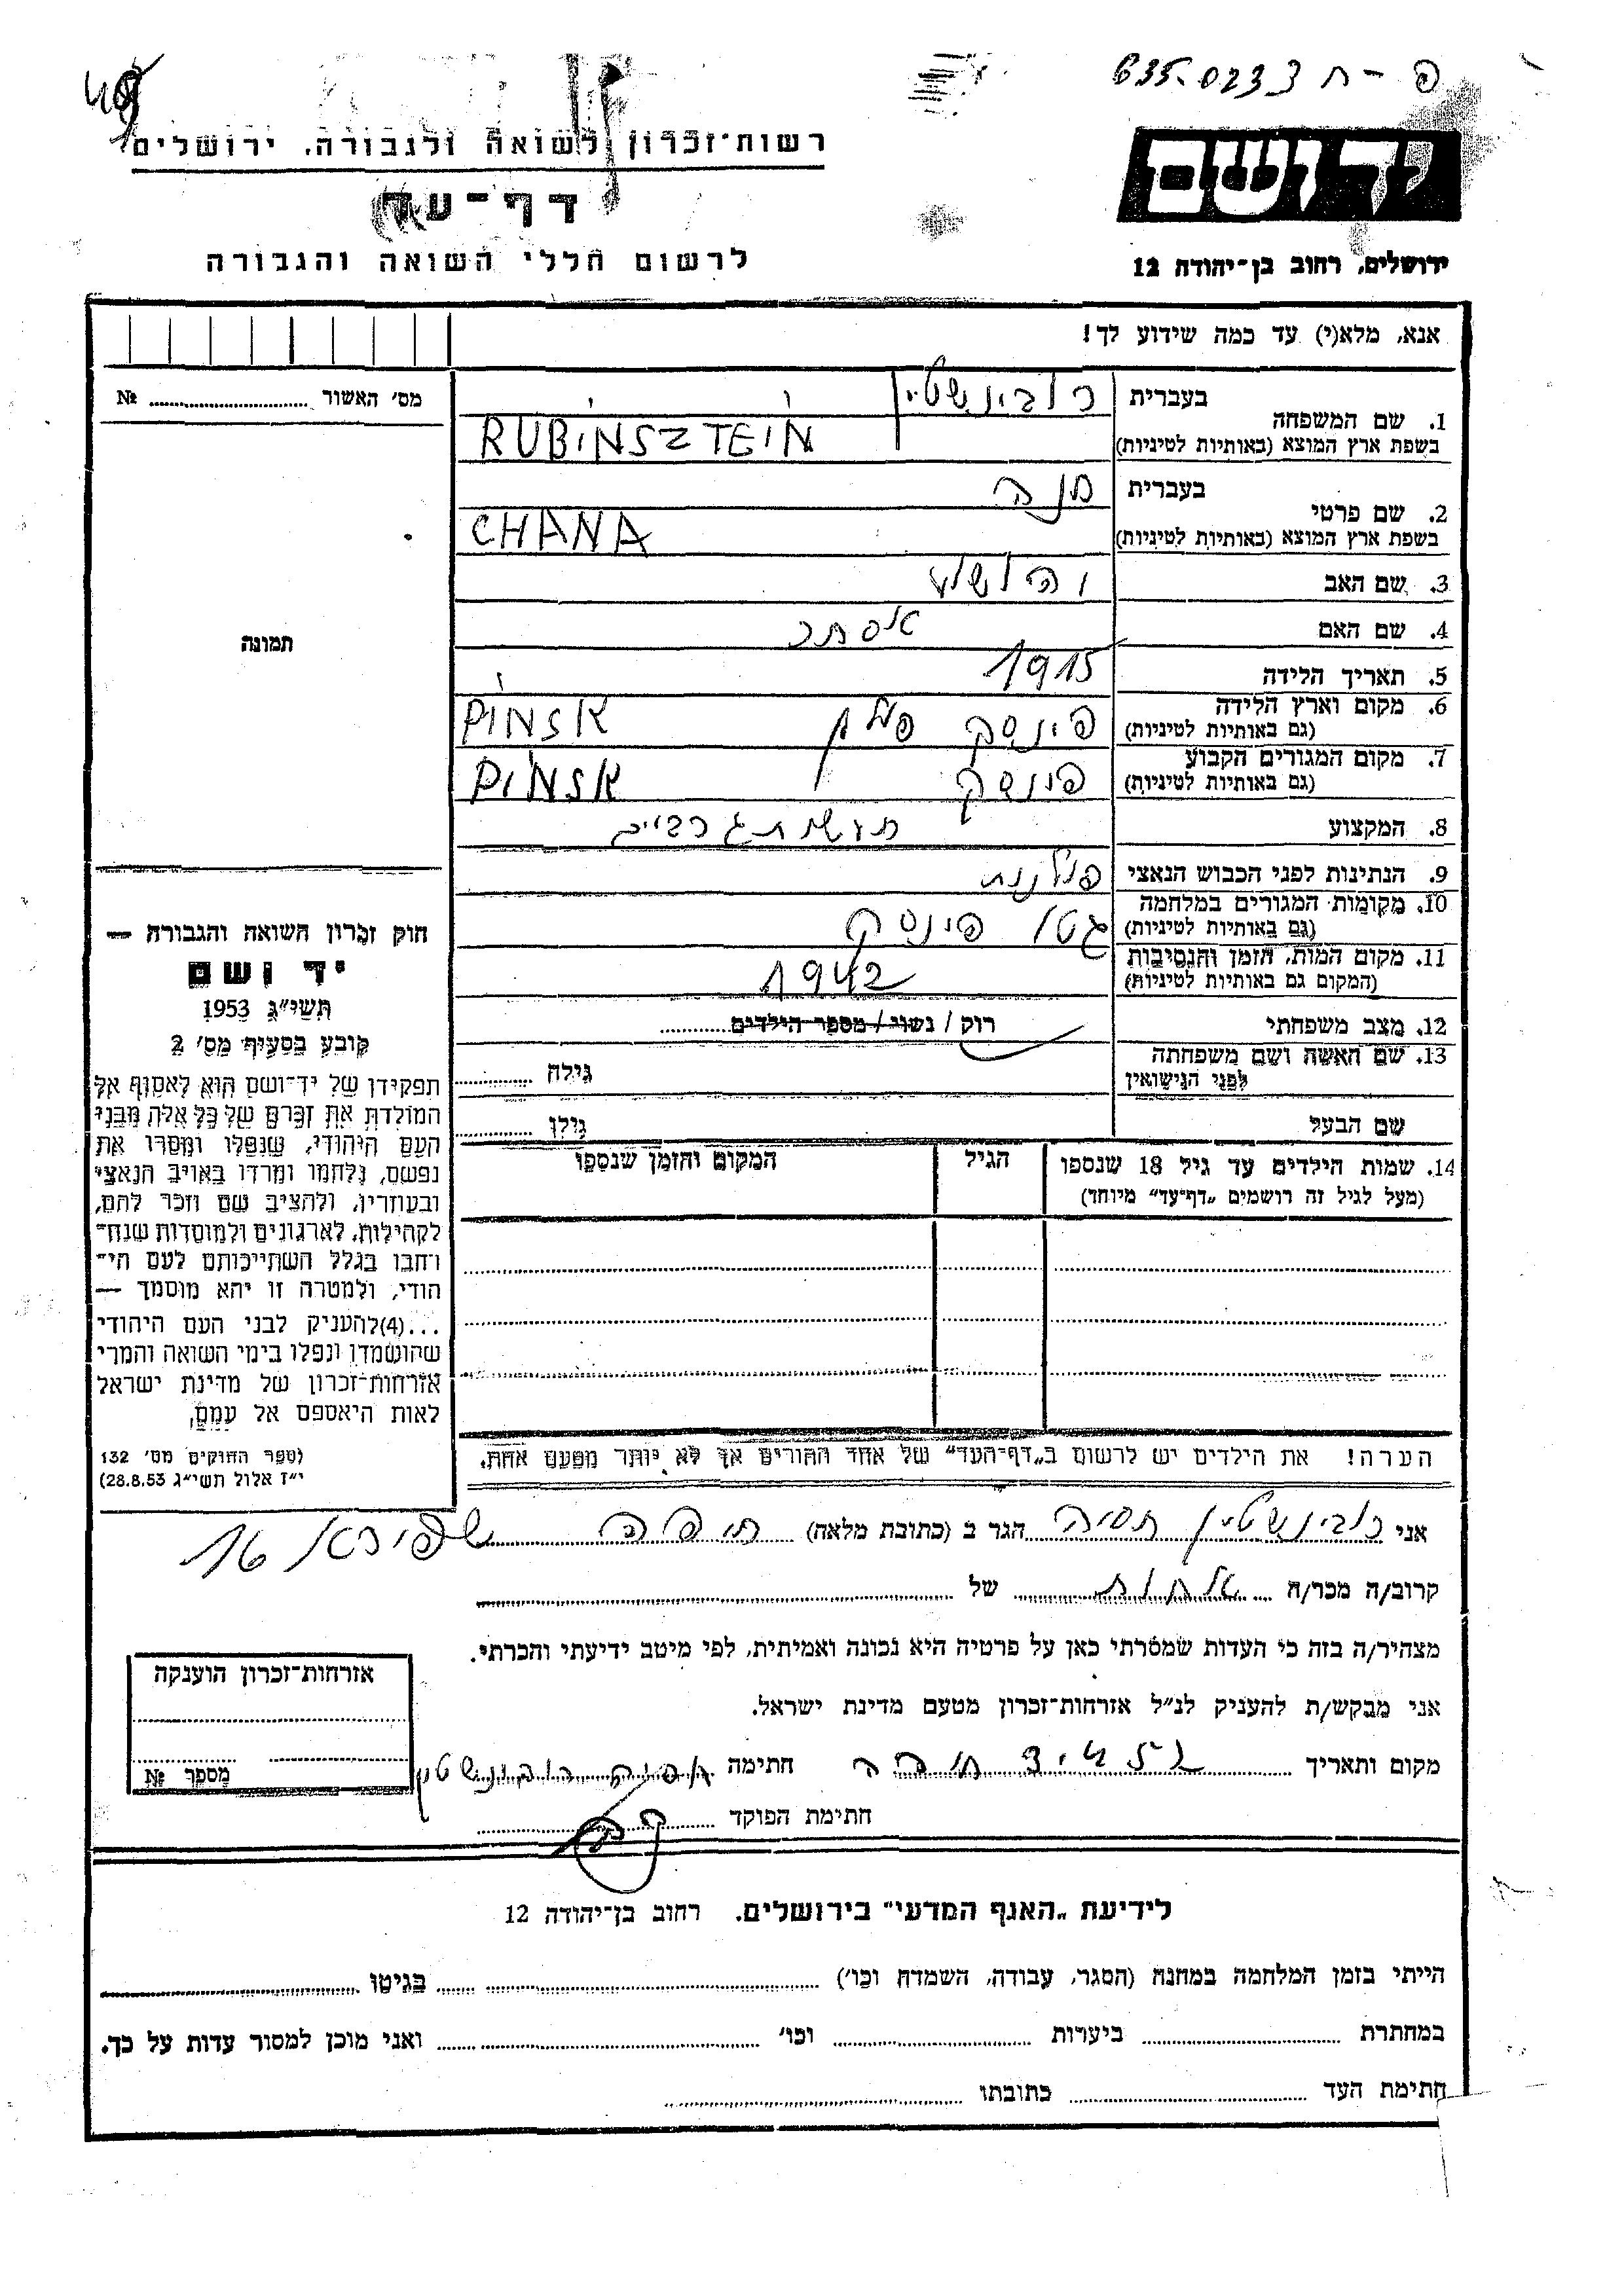 635-0233 ח - פ
יד ושם
ירושלים, רחוב בן־יהודה 12
רשות־זכרון לשואה ולגבורה, ירושלים
דף־עד
לרשום חללי השואה והגבורה
אנא, מלא(י) עד כמה שידוע לך!
מס' האשור № ........
1. שם המשפחה
בעברית רובינשטיין
בשפת ארץ המוצא (באותיות לטיניות) RUBINSZTEIN
2. שם פרטי
בעברית חנה
בשפת ארץ המוצא (באותיות לטיניות) CHANA
3. שם האב יהושע
4. שם האם אסתר
5. תאריך הלידה 1915
6. מקום וארץ הלידה
(גם באותיות לטיניות) פינסק פולין PINSK
7. מקום המגורים הקבוע
(גם באותיות לטיניות) פינסק PINSK
8. המקצוע
9. הנתינות לפני הכבוש הנאצי פולנית
10. מקומות המגורים במלחמה
(גם באותיות לטיניות) גטו פינסק
11. מקום המות, הזמן והנסיבות
(המקום גם באותיות לטיניות) 1942
12. מצב משפחתי רוק / נשוי / מספר הילדים ........
13. שם האשה ושם משפחתה
לפני הנישואין גילה ........
שם הבעל גילו ........
14. שמות הילדים עד גיל 18 שנספו
(מעל לגיל זה רושמים „דף־עד" מיוחד)
הגיל
המקום והזמן שנספו
תמונה
חוק זכרון השואה והגבורה —
יד ושם
תשי"ג 1953
קובע בסעיף מס' 2
תפקידן של יד־ושם הוא לאסוף אל
המולדת את זכרם של כל אלה מבני
העם היהודי, שנפלו ומסרו את
נפשם, נלחמו ומרדו באויב הנאצי
ובעוזריו, ולהציב שם וזכר להם,
לקהילות, לארגונים ולמוסדות שנח־
רחבו בגלל השתייכותם לעם הי־
הודי, ולמטרה זו יהא מוסמך —
...(4)להעניק לבני העם היהודי
שהושמדן ונפלו בימי השואה והמרי
אזרחות־זכרון של מדינת ישראל
לאות היאספם אל עמם,
(ספר החוקים מס' 132
י"ז אלול תשי"ג 28.8.53)
הערה! את הילדים יש לרשום ב„דף־העד" של אחד ההורים אך לא יותר מפעם אחת.
אני רובינשטיין חסיה הגר ב (כתובת מלאה) חיפה שפירא 16
קרוב/ה מכר/ה אחות של ........
מצהיר/ה בזה כי העדות שמסרתי כאן על פרטיה היא נכונה ואמיתית, לפי מיטב ידיעתי והכרתי.
אני מבקש/ת להעניק לנ"ל אזרחות־זכרון מטעם מדינת ישראל.
מקום ותאריך חיפה חתימה רובינשטיין
חתימת הפוקד ........
אזרחות־זכרון הוענקה
מספר №
לידיעת „האגף המדעי" בירושלים. רחוב בן־יהודה 12
הייתי בזמן המלחמה במחנה (הסגר, עבודה, השמדה וכו') ........ בגיטו ........
במחתרת ........ ביערות ........ וכו' ........ ואני מוכן למסור עדות על כך.
חתימת העד ........ כתובתו ........